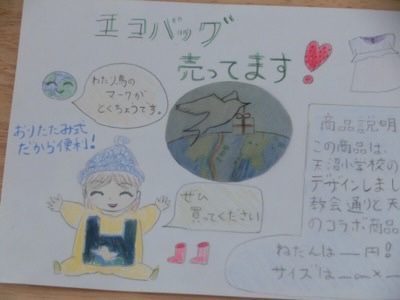 エコバッグ
売ってます!
わたり鳥の
マークが
とくちょうです。
おりたたみ式
だから便利!
ぜひ
買ってください
商品説明
この商品は、
天沼小学校の
デザインしまし
教会通りと天
のコラボ商品
ねだんは—円!
サイズは—cm×—